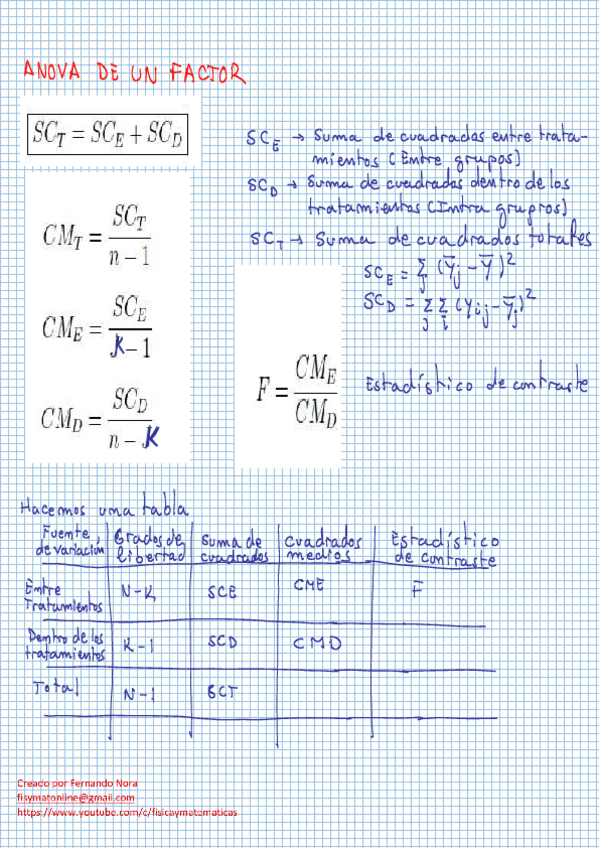 ANOVA DE UN FACTOR
SC_T = SC_E + SC_D
SC_E → Suma de cuadrados entre trata-
mientos (Entre grupos)
SC_D → Suma de cuadrados dentro de los
tratamientos (Intra grupros)
SC_T → Suma de cuadrados totales
SC_E = Σ_j (ȳ_j - ȳ)²
SC_D = Σ_j Σ_i (y_ij - ȳ_j)²
CM_T = SC_T / n - 1
CM_E = SC_E / K - 1
CM_D = SC_D / n - K
F = CM_E / CM_D
Estadístico de contraste
Hacemos una tabla
Fuente de variación | Grados de libertad | Suma de cuadrados | Cuadrados medios | Estadístico de contraste
Entre Tratamientos | N-K | SCE | CME | F
Dentro de los tratamientos | K-1 | SCD | CMD
Total | N-1 | SCT
Creado por Fernando Nora
fisymatonline@gmail.com
https://www.youtube.com/c/fisicaymatematicas